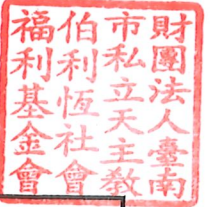 財團法人臺南
市私立天主教
伯利恆社會
福利基金會